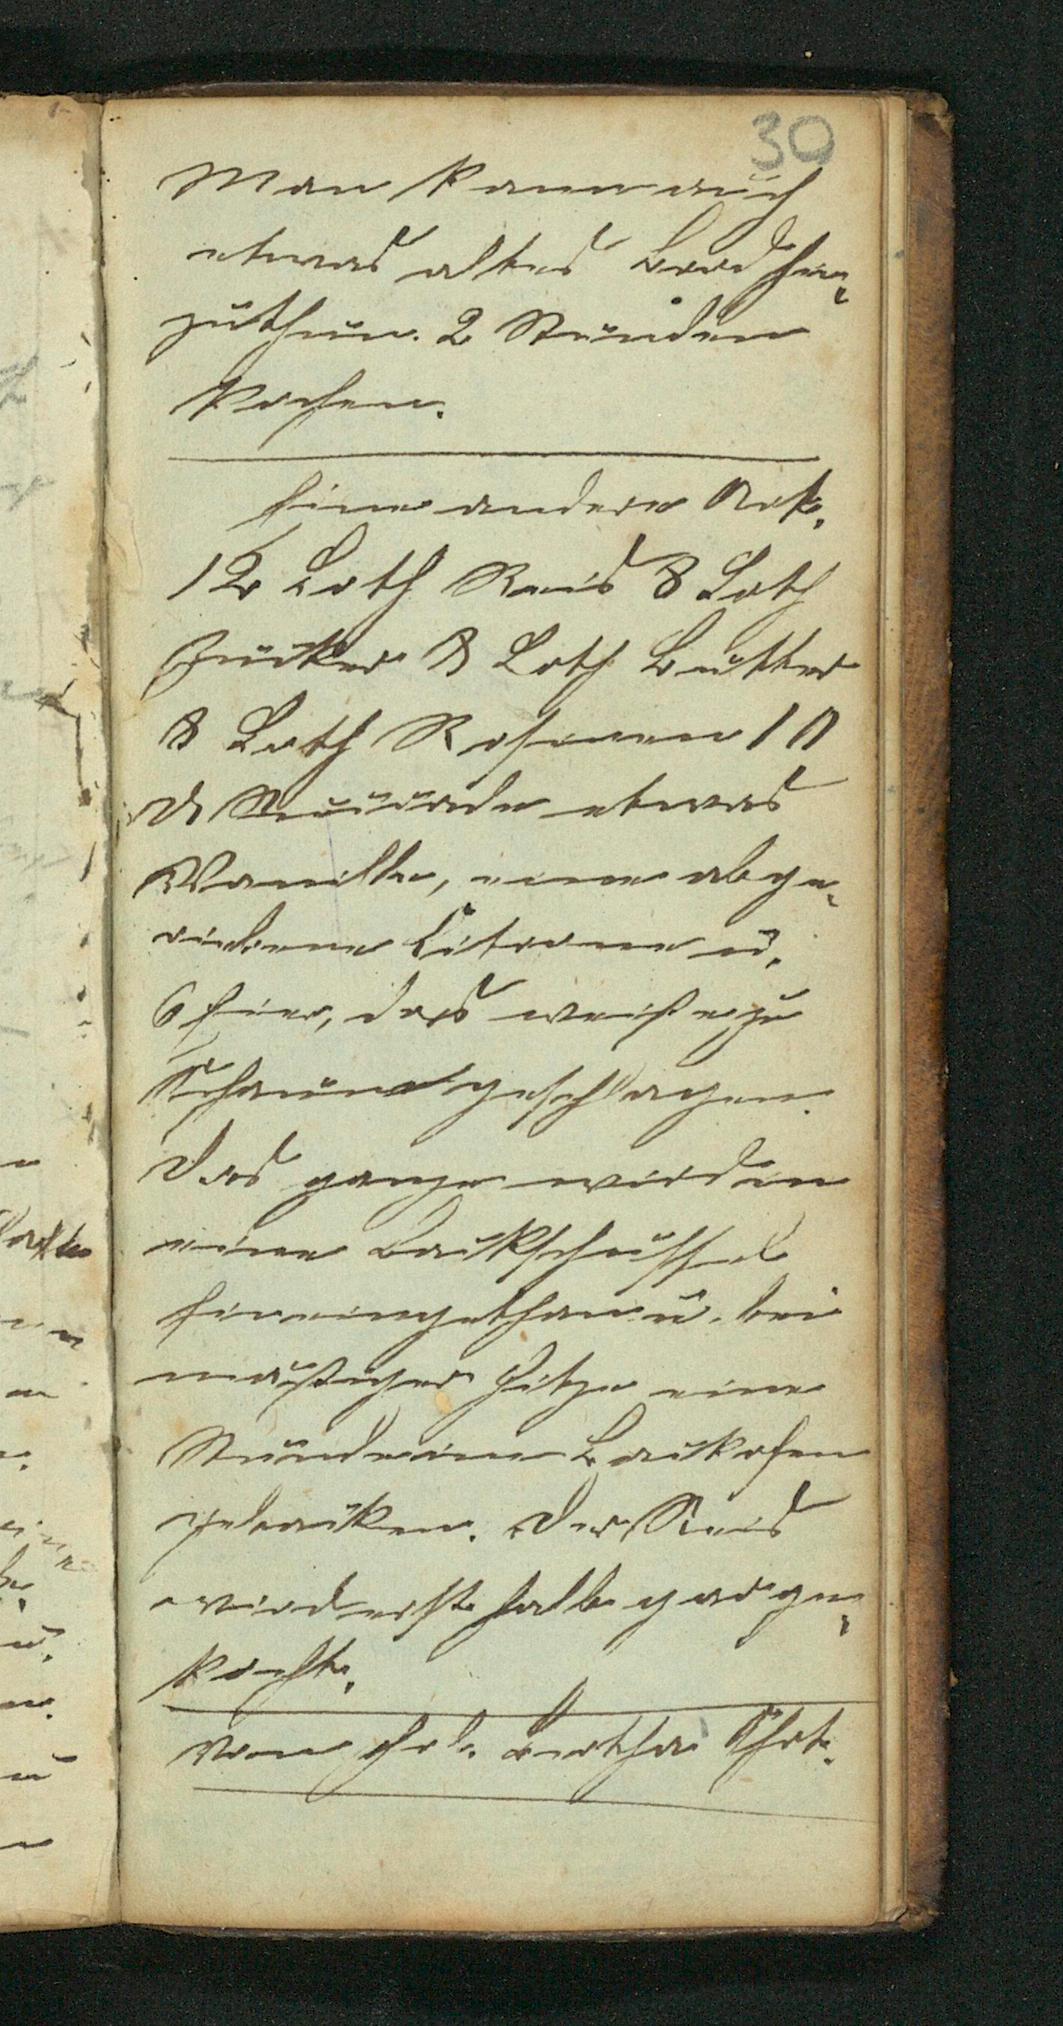 30
Man kann auch
etwas altes Brod hin-
zuthun. 2 Stunden
kochen.
Eine andere Art.
12 Loth Reis 8 Loth
Zucker 8 Loth Butter
8 Loth Rosinen 10
etwas
Vanille, eine abge-
riebene Citrone u.
6 Eier, das weiße zu
Schaum geschlagen.
Das ganze wird in
eine Backschüssel
hineingethan u. bei
mäßiger Hitze eine
Stunde im Backofen
gebacken. Der Reis
wird erst halb gar ge-
kocht.
von Frl. Bertha